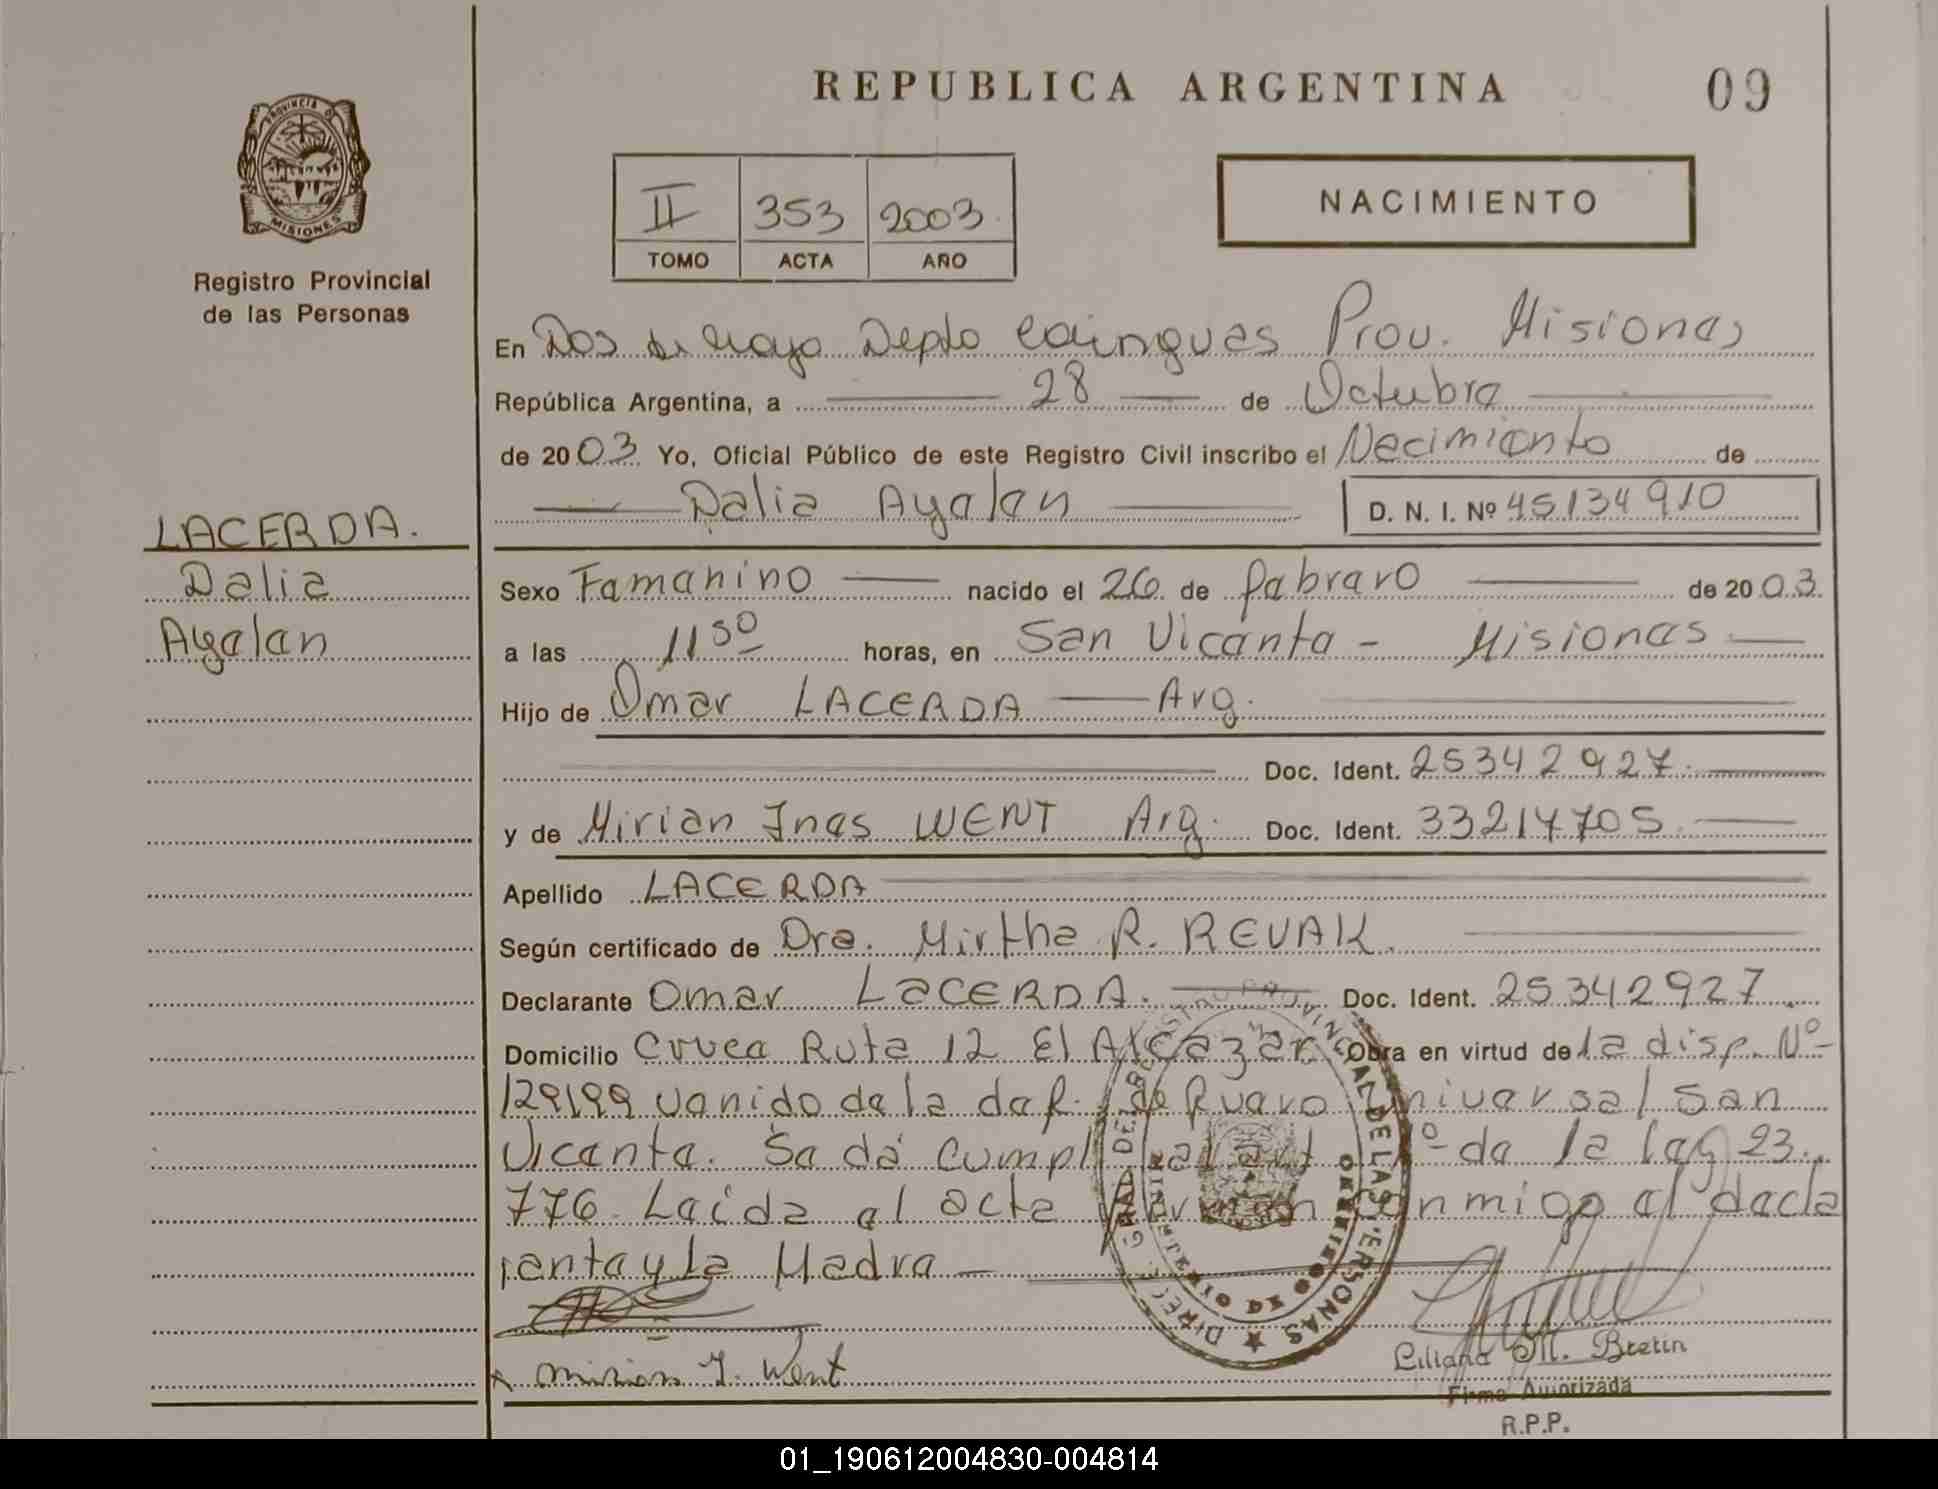 REPUBLICA ARGENTINA
09
PROVINCIA DE
MISIONES
Registro Provincial
de las Personas
II 353 2003
TOMO ACTA AÑO
NACIMIENTO
En Dos de Mayo Depto Cainguas Prov. Misiones
República Argentina, a 28 de Octubre
de 2003 Yo, Oficial Público de este Registro Civil inscribo el Nacimiento de
Dalia Ayalen D. N. I. Nº 45134910
LACERDA.
Dalia
Ayalen
Sexo Femenino nacido el 26 de febrero de 2003.
a las 11 50 horas, en San Vicente - Misiones
Hijo de Omar LACERDA Arg.
Doc. Ident. 25342927.
y de Mirian Ines WENT Arg. Doc. Ident. 33214705.
Apellido LACERDA
Según certificado de Dra. Mirtha R. REVAK.
Declarante Omar LACERDA. Doc. Ident. 25342927.
Domicilio Cruce Ruta 12 El Alcazar Obra en virtud de la disp. Nº
129/99 venido de la def. de fuero universal San
Vicente. Se dá cumpl al art 1º de la ley 23.
776. Leída el acta firman conmigo el decla
rante y la Madre
Mirian I. Went
Liliana M. Bretin
Firma Autorizada
R.P.P.
DIREC. GRAL DE REGISTRO PROVINCIAL DE LAS PERSONAS
MINISTERIO DE GOBIERNO
01_190612004830-004814